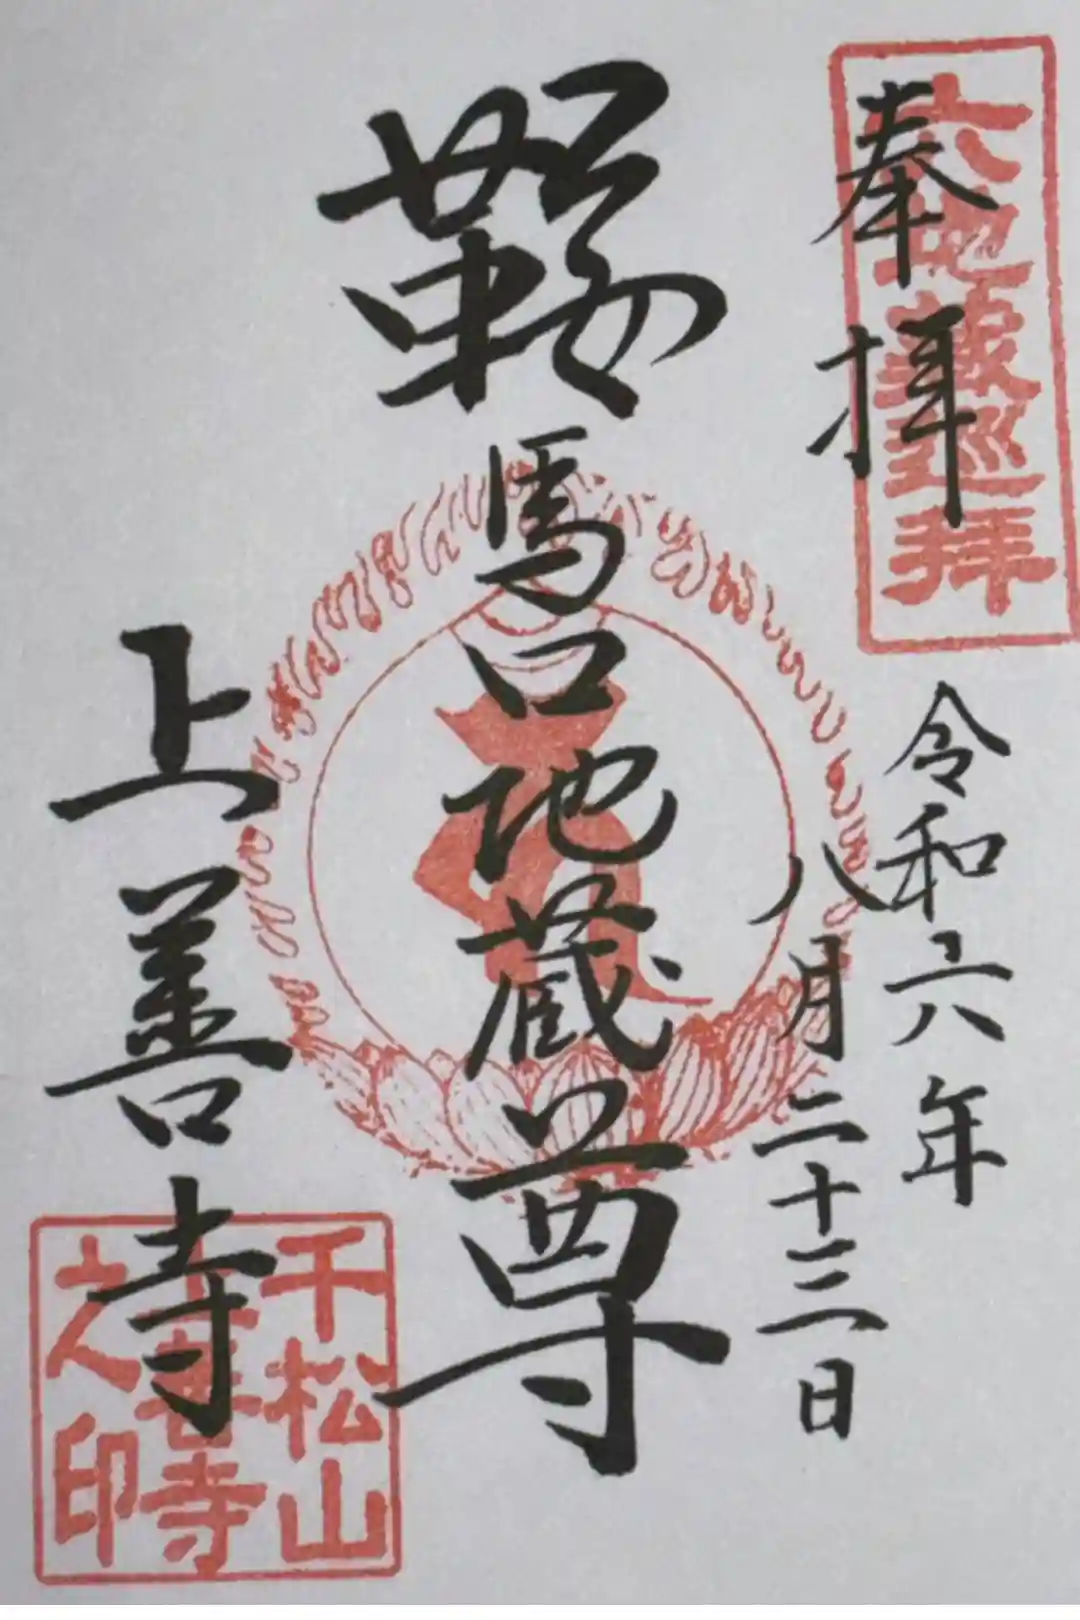 奉拝
六地蔵巡拝
令和六年
八月二十三日
鞍馬口地蔵尊
上善寺
千松山
上善寺
之印